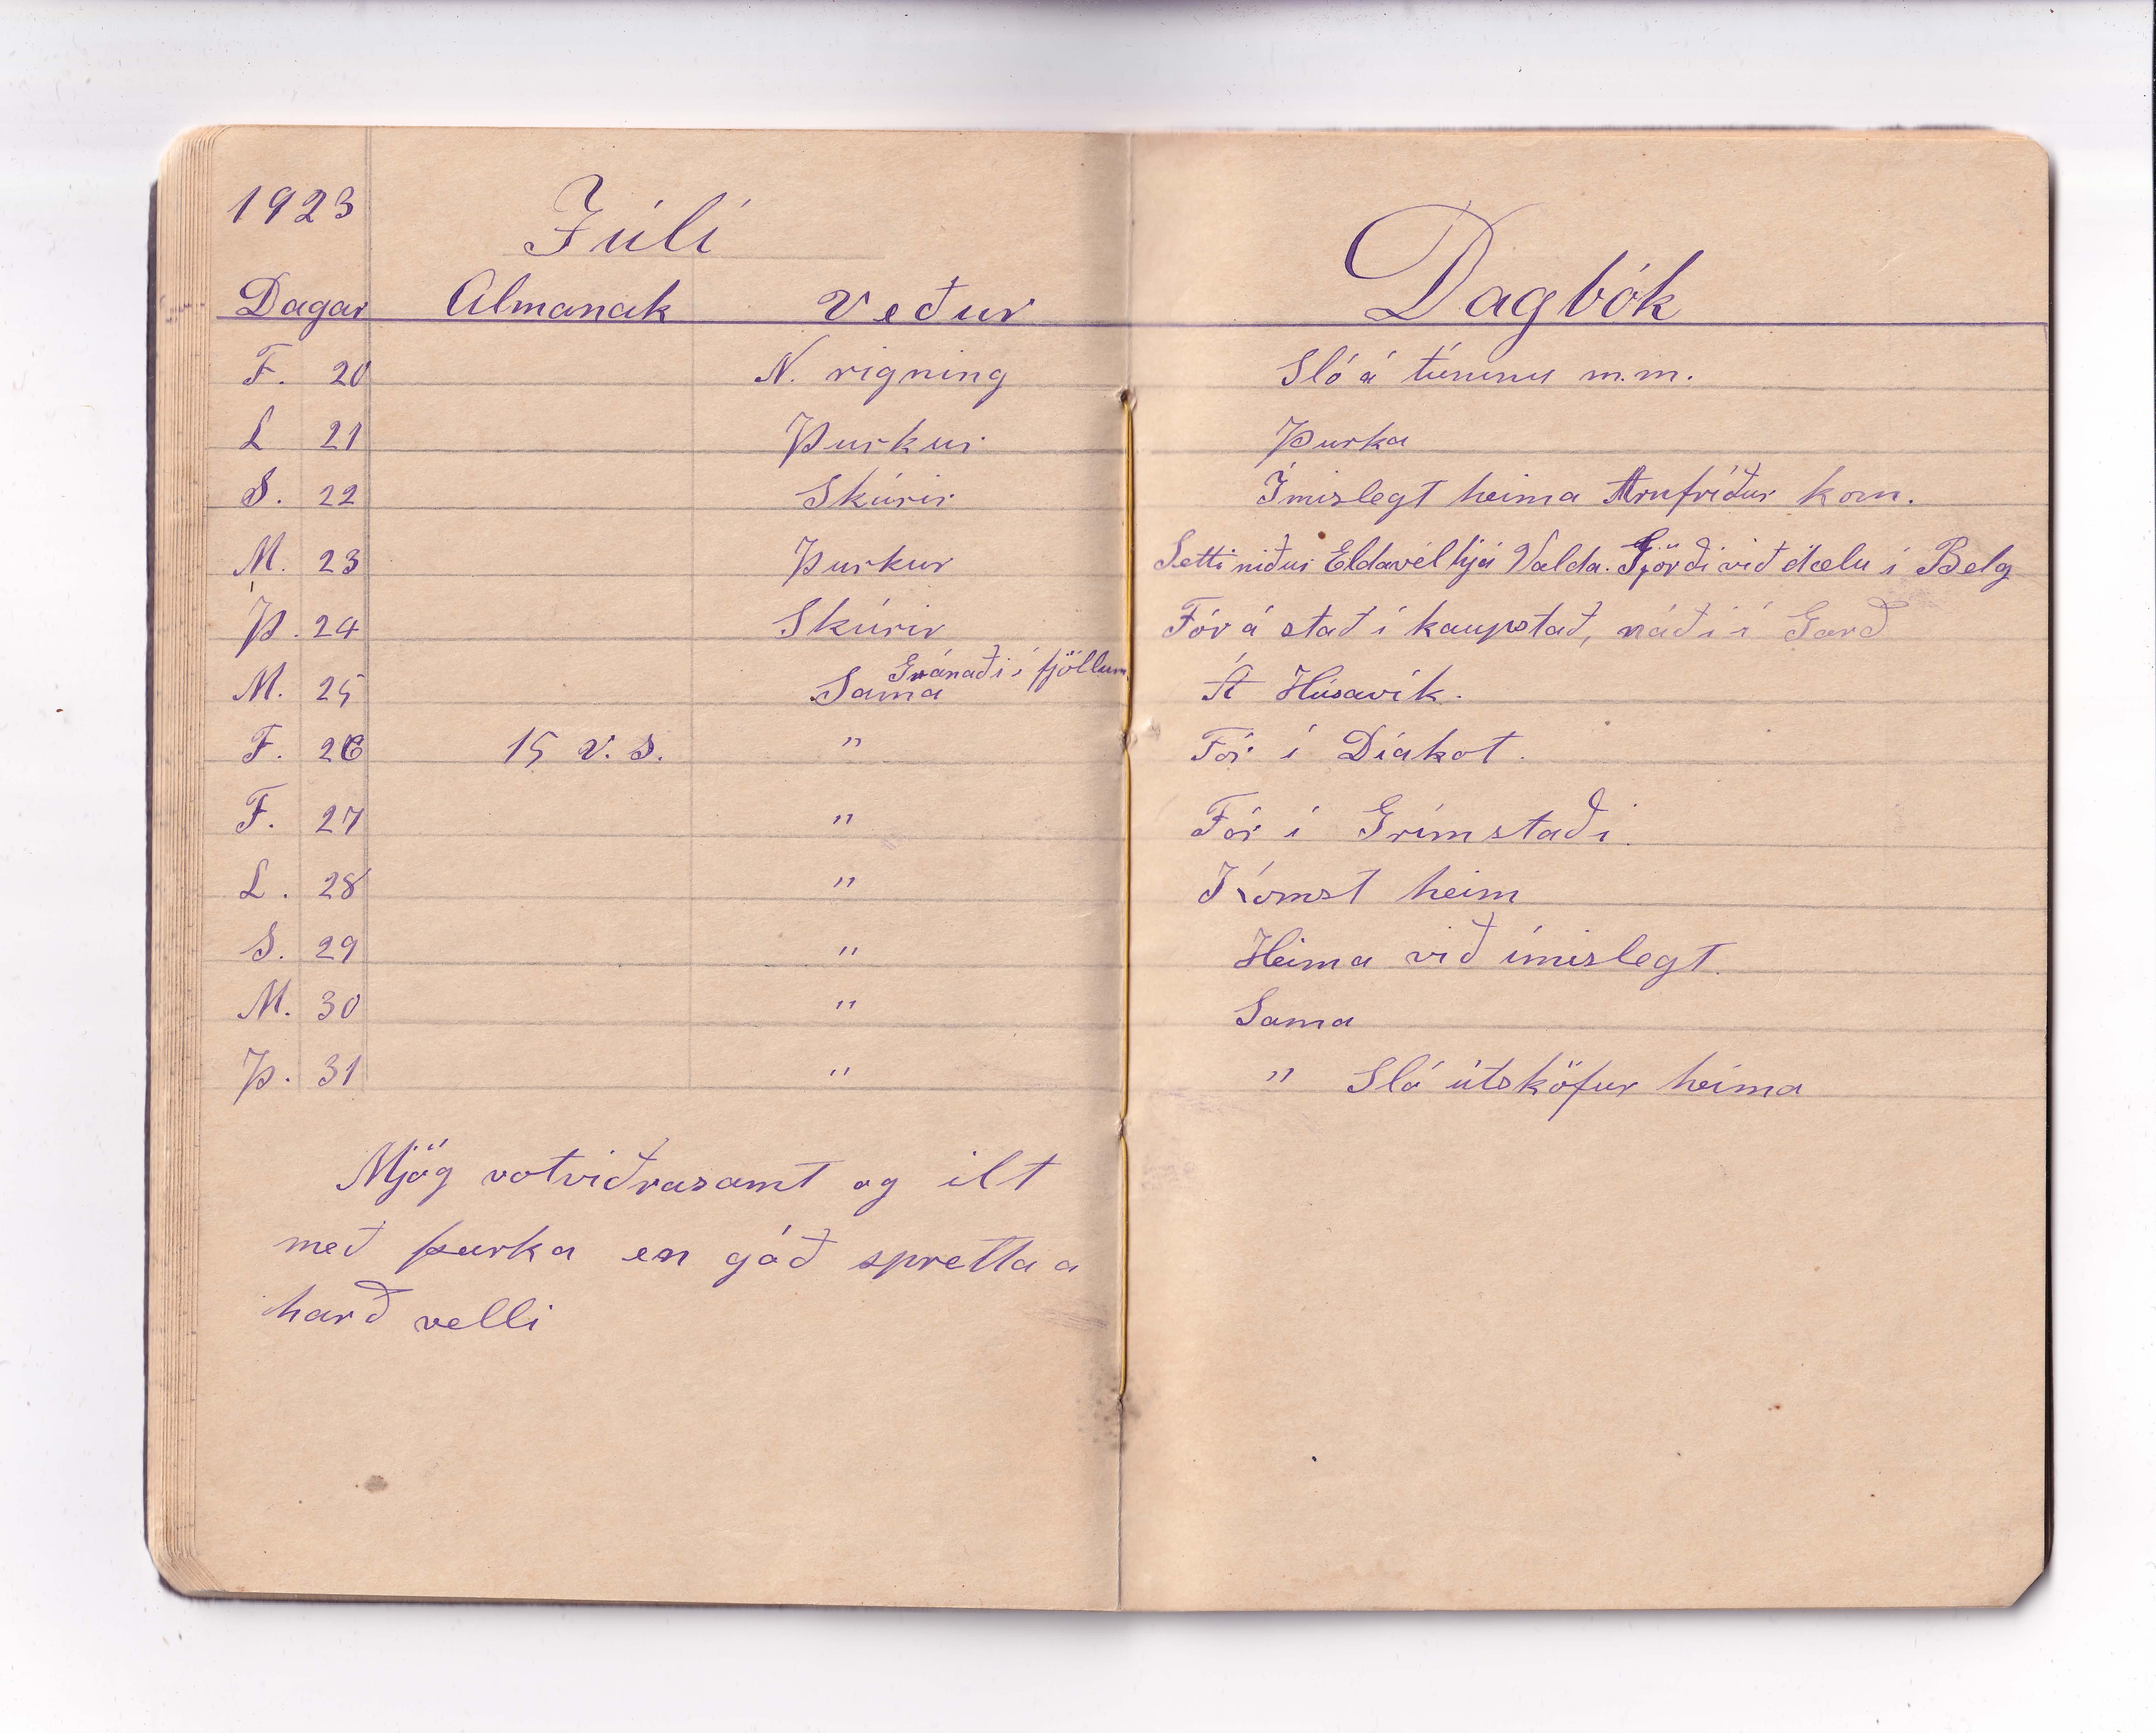 1923
Júlí
Dagbók
Dagar Almanak Veður
F. 20 N. rigning Sló á túninu m.m.
L 21 Þurkur Þurka
S. 22 Skúrir Ímislegt heima Arnfríður kom.
M. 23 Þurkur Setti niður Eldavél hjá Valda. Gjörði við dælu í Belg
Þ. 24 Skúrir Fór á stað í kaupstað, náði í Garð
Gránaði í fjöllum
M. 25 Sama Á Húsavík.
F. 26 15 v. s. " Fór í Díakot.
F. 27 " Fór í Grímstaði.
L. 28 " Komst heim
S. 29 " Heima við ímislegt.
M. 30 " Sama
Þ. 31 " " Sló útsköfur heima
Mjög votviðrasamt og ilt
með þurka en góð spretta a
harð velli